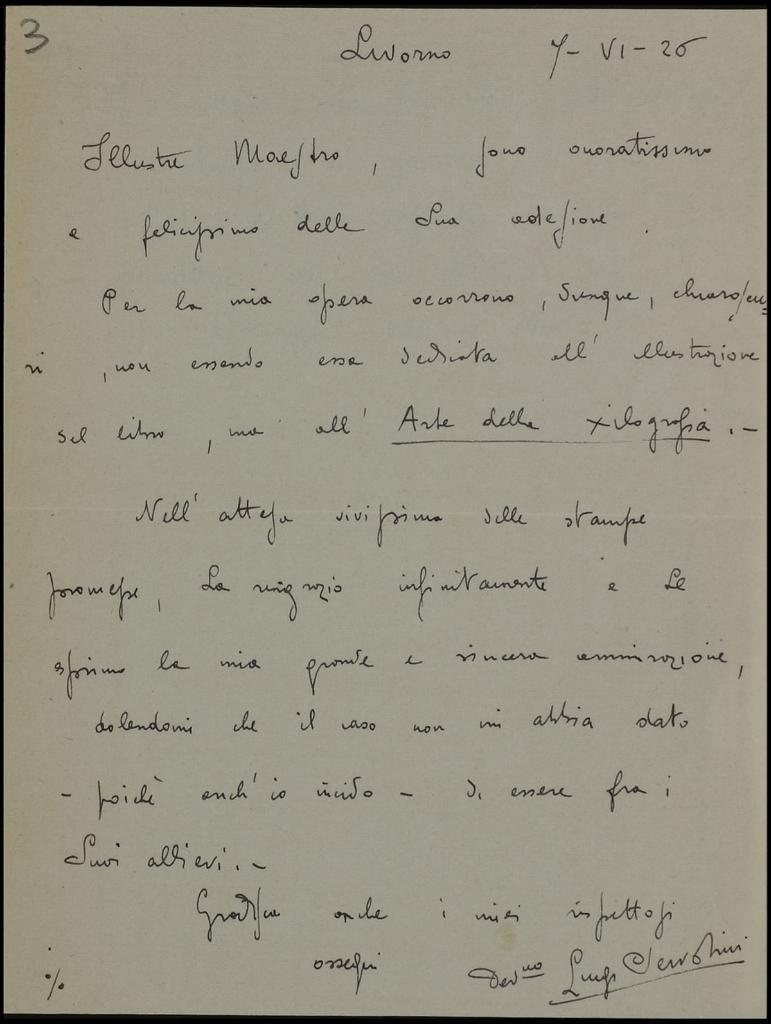 3
Livorno 7-VI-26
Illustre Maestro, sono onoratissimo
e felicissimo della Sua adesione.
Per la mia opera occorrono, dunque, chiaroscu=
ri, non essendo essa dedicata all' illustrazione
del libro, ma all' Arte della xilografia. -
Nell' attesa vivissima delle stampe
promesse, La ringrazio infinitamente e Le
esprimo la mia grande e sincera ammirazione,
dolendomi che il caso non mi abbia dato
- poichè anch' io incido - di essere fra i
Suoi allievi. -
Gradisca anche i miei rispettosi
ossequi
Dev.mo Luigi Servolini
%